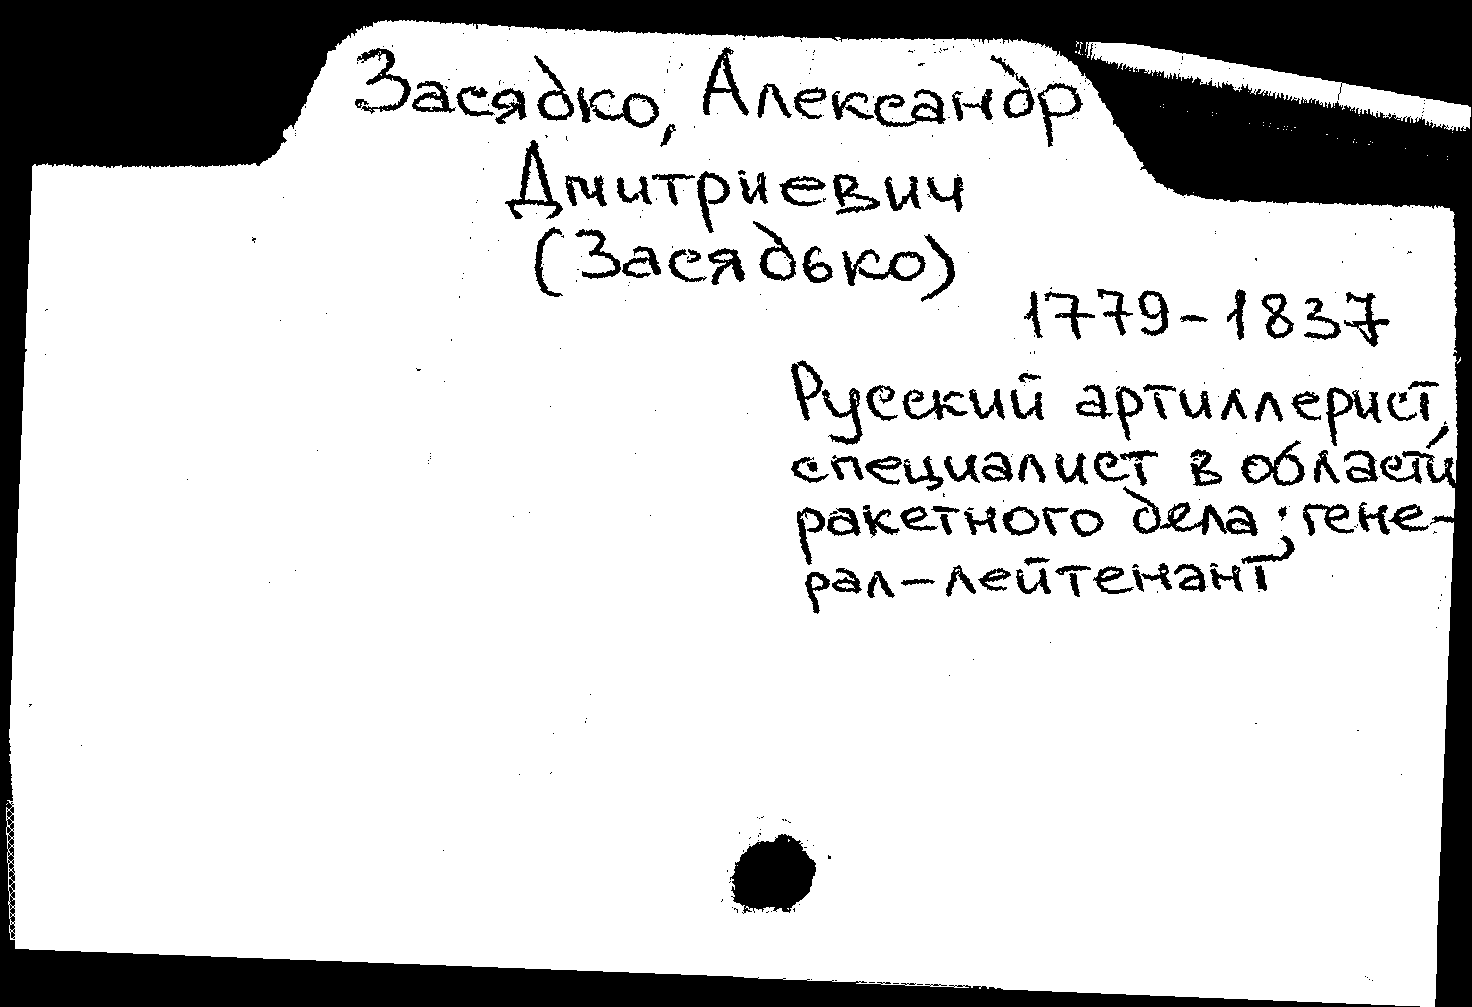 Засядко, Александр
Дмитриевич
(Засядько)
1779-1837
Русский артиллерист,
специалист в области
ракетного дела; гене-
рал-лейтенант